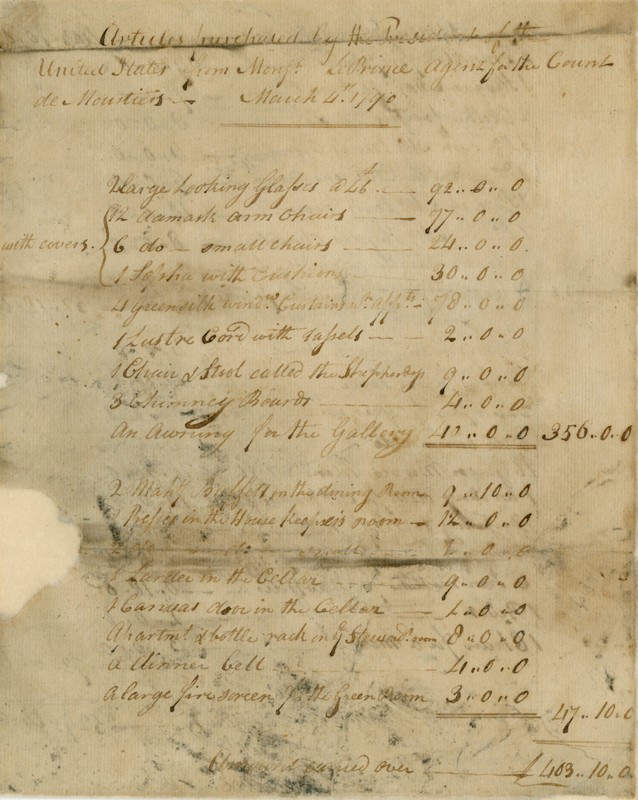 Articles purchased by the President of the
United States from Monsr. Le Prince Agent for the Count
de Moustiers — March 4th. 1790
2 large Looking Glasses @ £46 — 92..0..0
12 damask arm Chairs — 77..0..0
with covers. 6 do — small chairs — 24..0..0
1 Sopha with Cushions — 30..0..0
4 Green silk windw. Curtains — 78..0..0
1 Lustre Cord with tassels — 2..0..0
1 Chair & Stool called the Shepherdess 9..0..0
3 Chimney Boards — 4..0..0
An Awning for the Gallery 40..0..0 356..0..0
2 Buffets in the dining Room 9..10..0
2 Presses in the House keeper's room — 12..0..0
2 do do small 1..0..0
1 Larder in the Cellar 9..0..0
1 Canvas door in the Cellar — 1..0..0
Apartmt. & bottle rack in ye Steward's room 8..0..0
a dinner bell 4..0..0
a large fire screen for the Green room 3..0..0
47..10..0
Amount carried over — £403..10..0